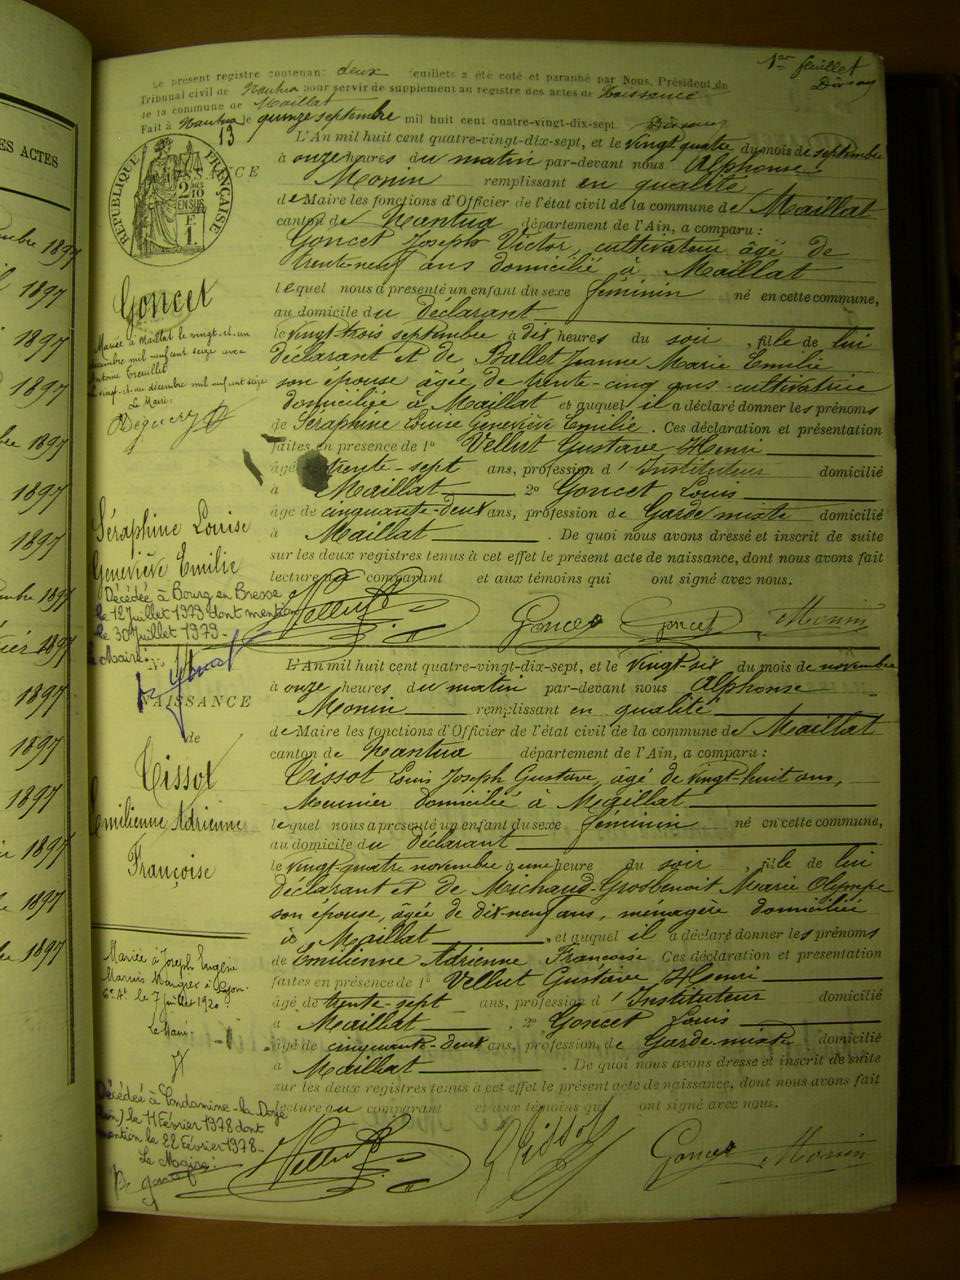 ES ACTES
1897
1897
1897
1897
1897
1897
1897
1897
1897
1897
1897
1897
1897
1897
1er feuillet
Le present registre contenant deux feuillets a été coté et paraphé par Nous, Président du
Tribunal civil de Nantua pour servir de supplement au registre des actes de Naissance
de la commune de Maillat
Fait à Nantua le quinze septembre mil huit cent quatre-vingt-dix-sept
13
RÉPUBLIQUE FRANÇAISE
2/10 EN SUS
F 1.
L'An mil huit cent quatre-vingt-dix-sept, et le vingt quatre du mois de septembre
à onze heures du matin par-devant nous Alphonse
Monin remplissant en qualité
de Maire les fonctions d'Officier de l'état civil de la commune de Maillat
canton de Nantua département de l'Ain, a comparu :
Goncet Joseph Victor, cultivateur âgé de
trente-neuf ans domicilié à Maillat
lequel nous a présenté un enfant du sexe féminin né en cette commune,
au domicile du déclarant
le vingt-trois septembre à dix heures du soir, fille de lui
déclarant et de Ballet Jeanne Marie Emilie
son épouse âgée de trente-cinq ans cultivatrice
domiciliée à Maillat et auquel il a déclaré donner les prénoms
de Séraphine Louise Geneviève Emilie. Ces déclaration et présentation
faites en presence de 1º Vellut Gustave Henri
âgé trente-sept ans, profession d'Instituteur domicilié
à Maillat 2º Goncet Louis
âgé de cinquante-deux ans, profession de Garde mixte domicilié
à Maillat. De quoi nous avons dressé et inscrit de suite
sur les deux registres tenus à cet effet le présent acte de naissance, dont nous avons fait
lecture au comparant et aux témoins qui ont signé avec nous.
Vellut Goncet Goncet Monin
Goncet
Mariée à Maillat le vingt-et-un
décembre mil neuf cent seize avec
Antoine
le vingt-et-un décembre mil neuf cent seize
Le Maire:
Séraphine Louise
Geneviève Emilie
Décédée à Bourg en Bresse
le 12 Juillet 1979 dont mention
le 30 Juillet 1979
Le Maire:
L'An mil huit cent quatre-vingt-dix-sept, et le vingt-six du mois de novembre
à onze heures du matin par-devant nous Alphonse
Monin remplissant en qualité
de Maire les fonctions d'Officier de l'état civil de la commune de Maillat
canton de Nantua département de l'Ain, a comparu :
Tissot Louis Joseph Gustave, âgé de vingt-huit ans,
Meunier domicilié à Maillat
lequel nous a présenté un enfant du sexe féminin né en cette commune,
au domicile du déclarant
le vingt-quatre novembre à une heure du soir, fille de lui
déclarant et de Michaud-Grosbenoit Marie Olympe
son épouse, âgée de dix-neuf ans, ménagère domiciliée
à Maillat, et auquel il a déclaré donner les prénoms
de Emilienne Adrienne Françoise Ces déclaration et présentation
faites en présence de 1º Vellut Gustave Henri
âgé de trente-sept ans, profession d'Instituteur domicilié
à Maillat. 2º Goncet Louis
âgé de cinquante-deux ans, profession de Garde mixte domicilié
à Maillat. De quoi nous avons dressé et inscrit de suite
sur les deux registres tenus à cet effet le présent acte de naissance, dont nous avons fait
lecture au comparant et aux témoins qui ont signé avec nous.
Vellut Tissot Goncet Monin
NAISSANCE
de
Tissot
Emilienne Adrienne
Françoise
Mariée à Joseph Eugène
Lyon
6e At le 7 juillet 1920
Le Maire
Décédée à Condamine-la-Doye
(Ain) le 11 Février 1978 dont
mention le 22 Février 1978
Le Maire: